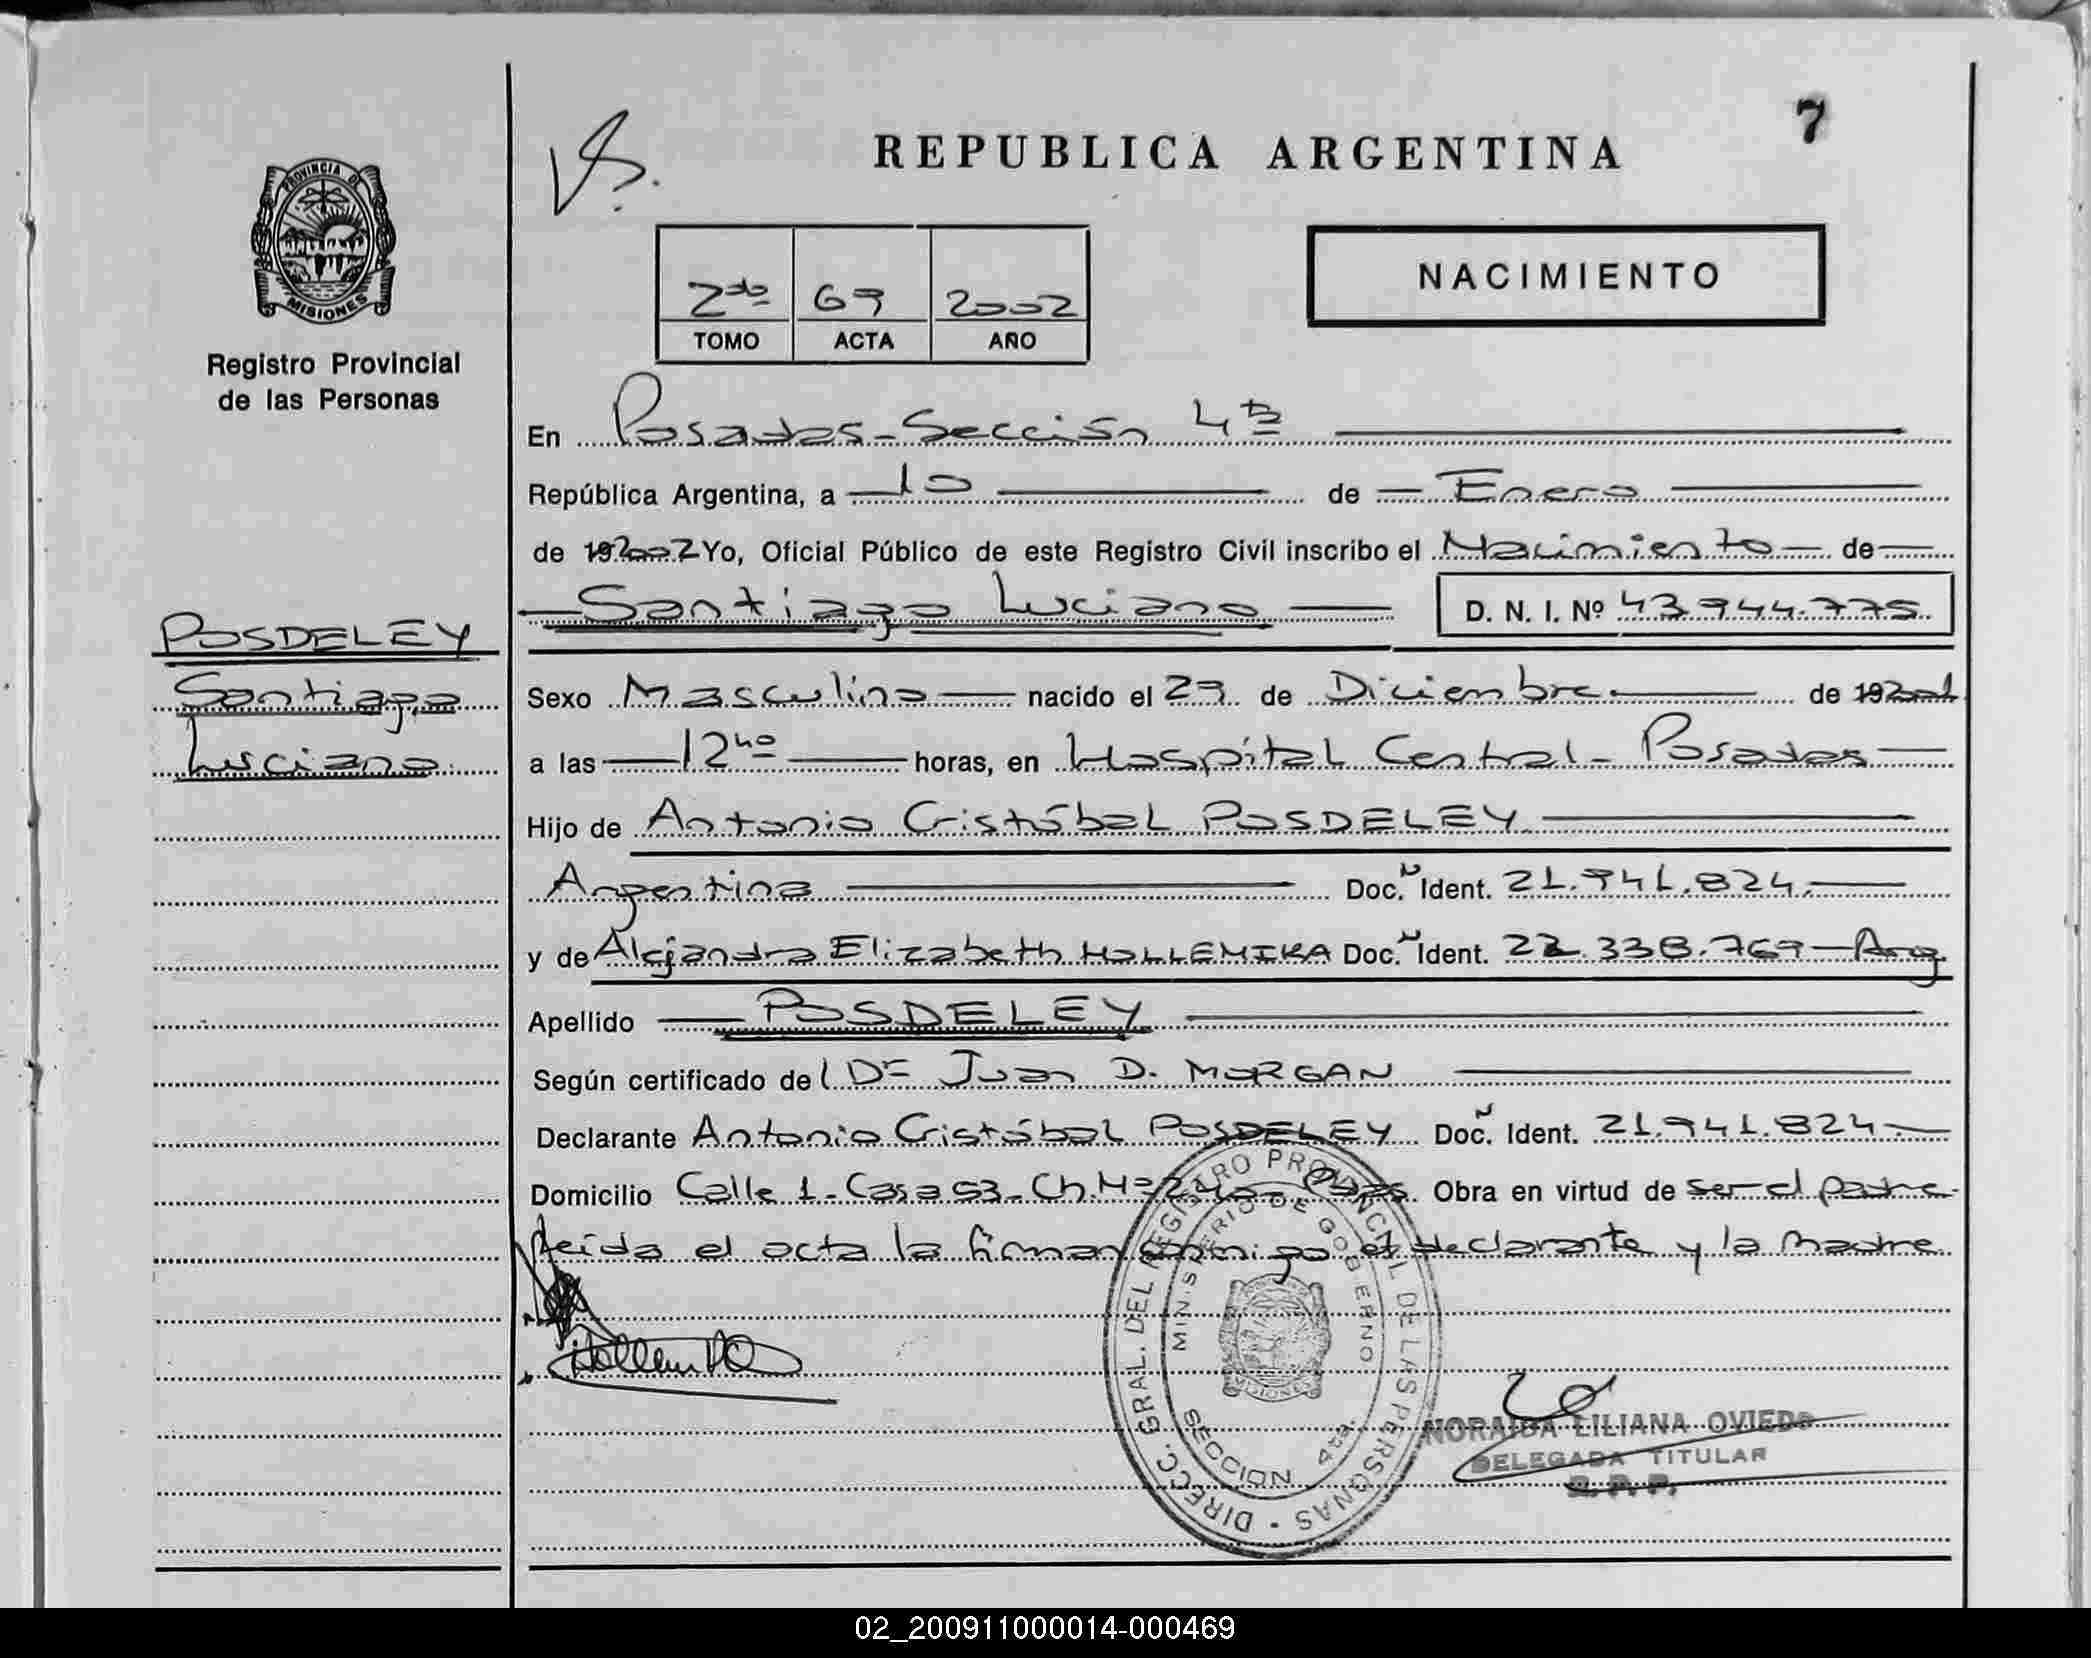 7
REPUBLICA ARGENTINA
PROVINCIA DE
MISIONES
Registro Provincial
de las Personas
2do 69 2002
TOMO ACTA AÑO
NACIMIENTO
En Posadas - Sección 4ta
República Argentina, a 10 de Enero
de 192002 Yo, Oficial Público de este Registro Civil inscribo el Nacimiento de
Santiago Luciano D. N. I. Nº 43.944.775
POSDELEY
Santiago
Luciano
Sexo Masculino nacido el 29 de Diciembre de 192001
a las 12 40 horas, en Hospital Central - Posadas
Hijo de Antonio Cristóbal POSDELEY
Argentina Doc. Ident. 21.941.824.
y de Alejandra Elizabeth HOLLEMIKA Doc. Ident. 22.338.769 - Arg.
Apellido POSDELEY
Según certificado del Dr Juan D. MORGAN
Declarante Antonio Cristóbal POSDELEY Doc. Ident. 21.941.824
Domicilio Calle 1 - Casa 53 - Ch. Nº Obra en virtud de ser el padre
leida el acta la firman conmigo el declarante y la madre
DIRECC. GRAL. DEL REGISTRO PROVINCIAL DE LAS PERSONAS
MINISTERIO DE GOBIERNO
MISIONES
SECCION 4ta.
NORAIDA LILIANA OVIEDO
DELEGADA TITULAR
R. P. P.
02_200911000014-000469